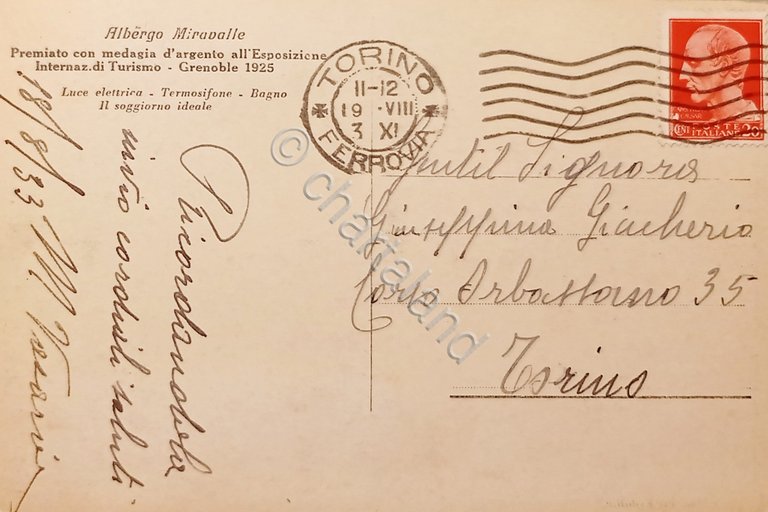 Albergo Miravalle
Premiato con medagia d'argento all'Esposizione
Internaz. di Turismo - Grenoble 1925
Luce elettrica - Termosifone - Bagno
Il soggiorno ideale
TORINO
11-12
19 · VIII
3 XI
FERROVIA
POSTE
ITALIANE
CENT 20
Gentil Signora
Giuseppina Giacherio
Corso Orbassano 35
Torino
Ricordandola
invio cordiali saluti
18/8/33 M.
© chartaland